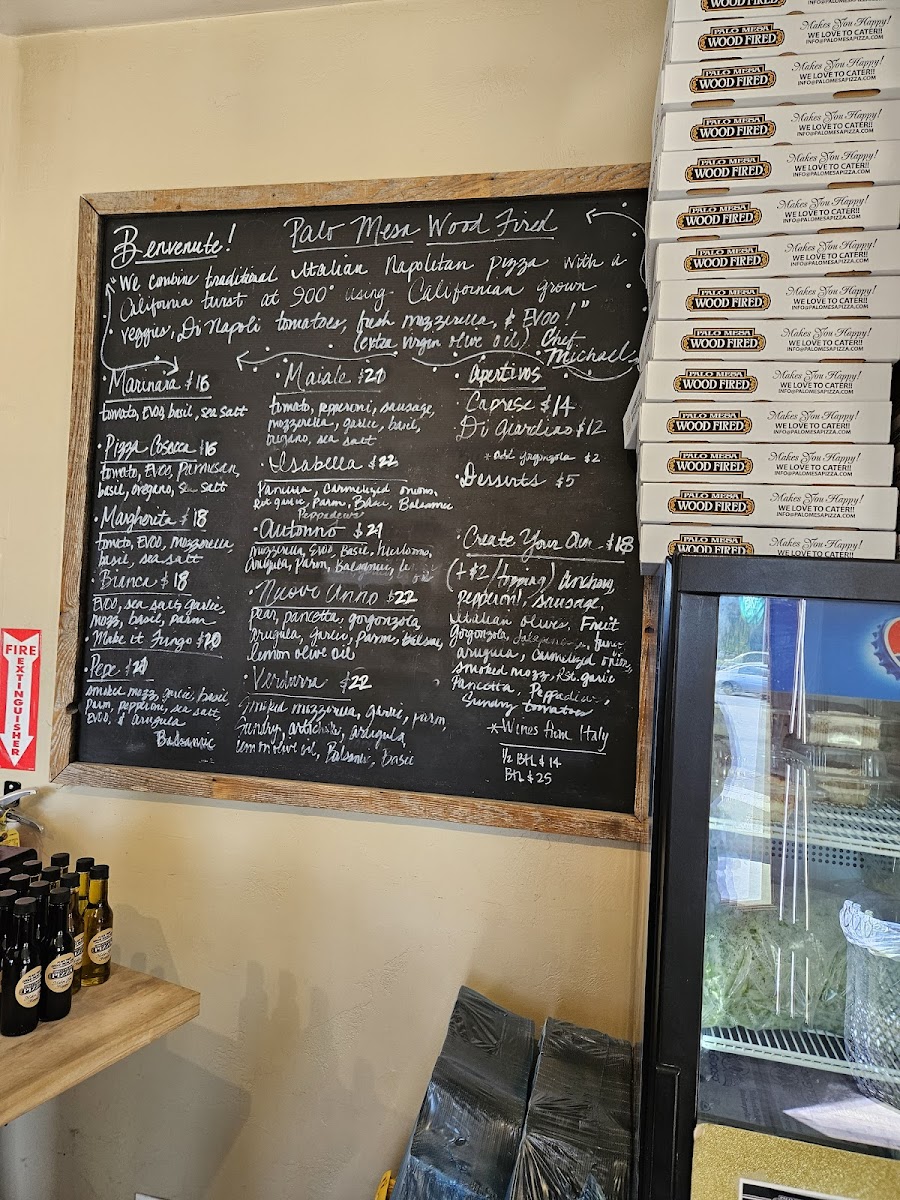 Benvenute!
Palo Mesa Wood Fired
"We combine traditional Italian Napolitan pizza with a
California twist at 900° using Californian grown
veggies, Di Napoli tomatoes, fresh mozzerella, & EVOO!"
(extra virgin olive oil) Chef
Michael
• Marinara $16
tomato, EVOO, basil, sea salt
• Pizza Cosecca $16
tomato, EVOO, Parmesan,
basil, oregano, sea salt
• Margherita $18
tomato, EVOO, mozzerella,
basil, sea salt
• Bianca $18
EVOO, sea salt, garlic,
mozz, basil, parm
Make it Fungo $20
• Pepe $20
smoked mozz, garlic, basil,
parm, pepperoni, sea salt,
EVOO, & arugula
Balsamic
• Maiale $20
tomato, pepperoni, sausage,
mozzerella, garlic, basil,
oregano, sea salt
• Isabella $22
Pancetta, Carmelized onions,
garlic, Parm, Balsamic
Peppadews
• Autonno $21
mozzerella, EVOO, Basil, Heirloms,
Arugula, Parm, Balsamic,
oil
• Nuovo Anno $22
pear, pancetta, gorgonzola,
arugula, garlic, parm,
lemon olive oil
• Verdurra $22
Smoked mozzerella, garlic, parm,
Sundry, artichoke, arugula,
lemon olive oil, Balsamic, basil
• Apertivos
Caprese $14
Di Giardino $12
* add gorgonzola $2
• Desserts $5
• Create Your Own $18
(+ $2/topping) anchovy,
pepperoni, sausage,
Italian olives, Fruit
gorgonzola, Jalapenos,
arugula, carmelized onion,
smoked mozz, Rst. garlic
Pancetta, Peppadew,
Sundry tomatoes
* Wines from Italy
1/2 Btl $14
Btl $25
PALO MESA
WOOD FIRED
Makes You Happy!
WE LOVE TO CATER!!
INFO@PALOMESAPIZZA.COM
PALO MESA
WOOD FIRED
Makes You Happy!
WE LOVE TO CATER!!
INFO@PALOMESAPIZZA.COM
PALO MESA
WOOD FIRED
Makes You Happy!
WE LOVE TO CATER!!
INFO@PALOMESAPIZZA.COM
PALO MESA
WOOD FIRED
Makes You Happy!
WE LOVE TO CATER!!
INFO@PALOMESAPIZZA.COM
FIRE
EXTINGUISHER